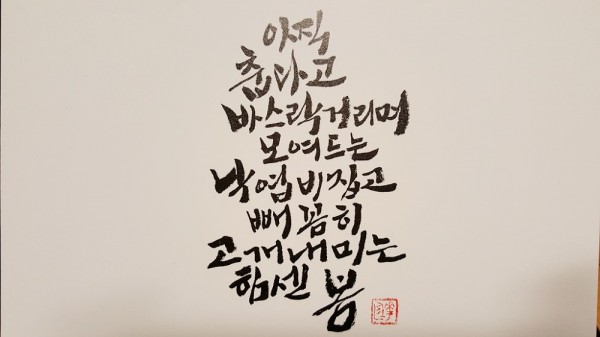 아직
춥다고
바스락거리며
모여드는
낙엽 비집고
빼꼼히
고개내미는
힘센 봄